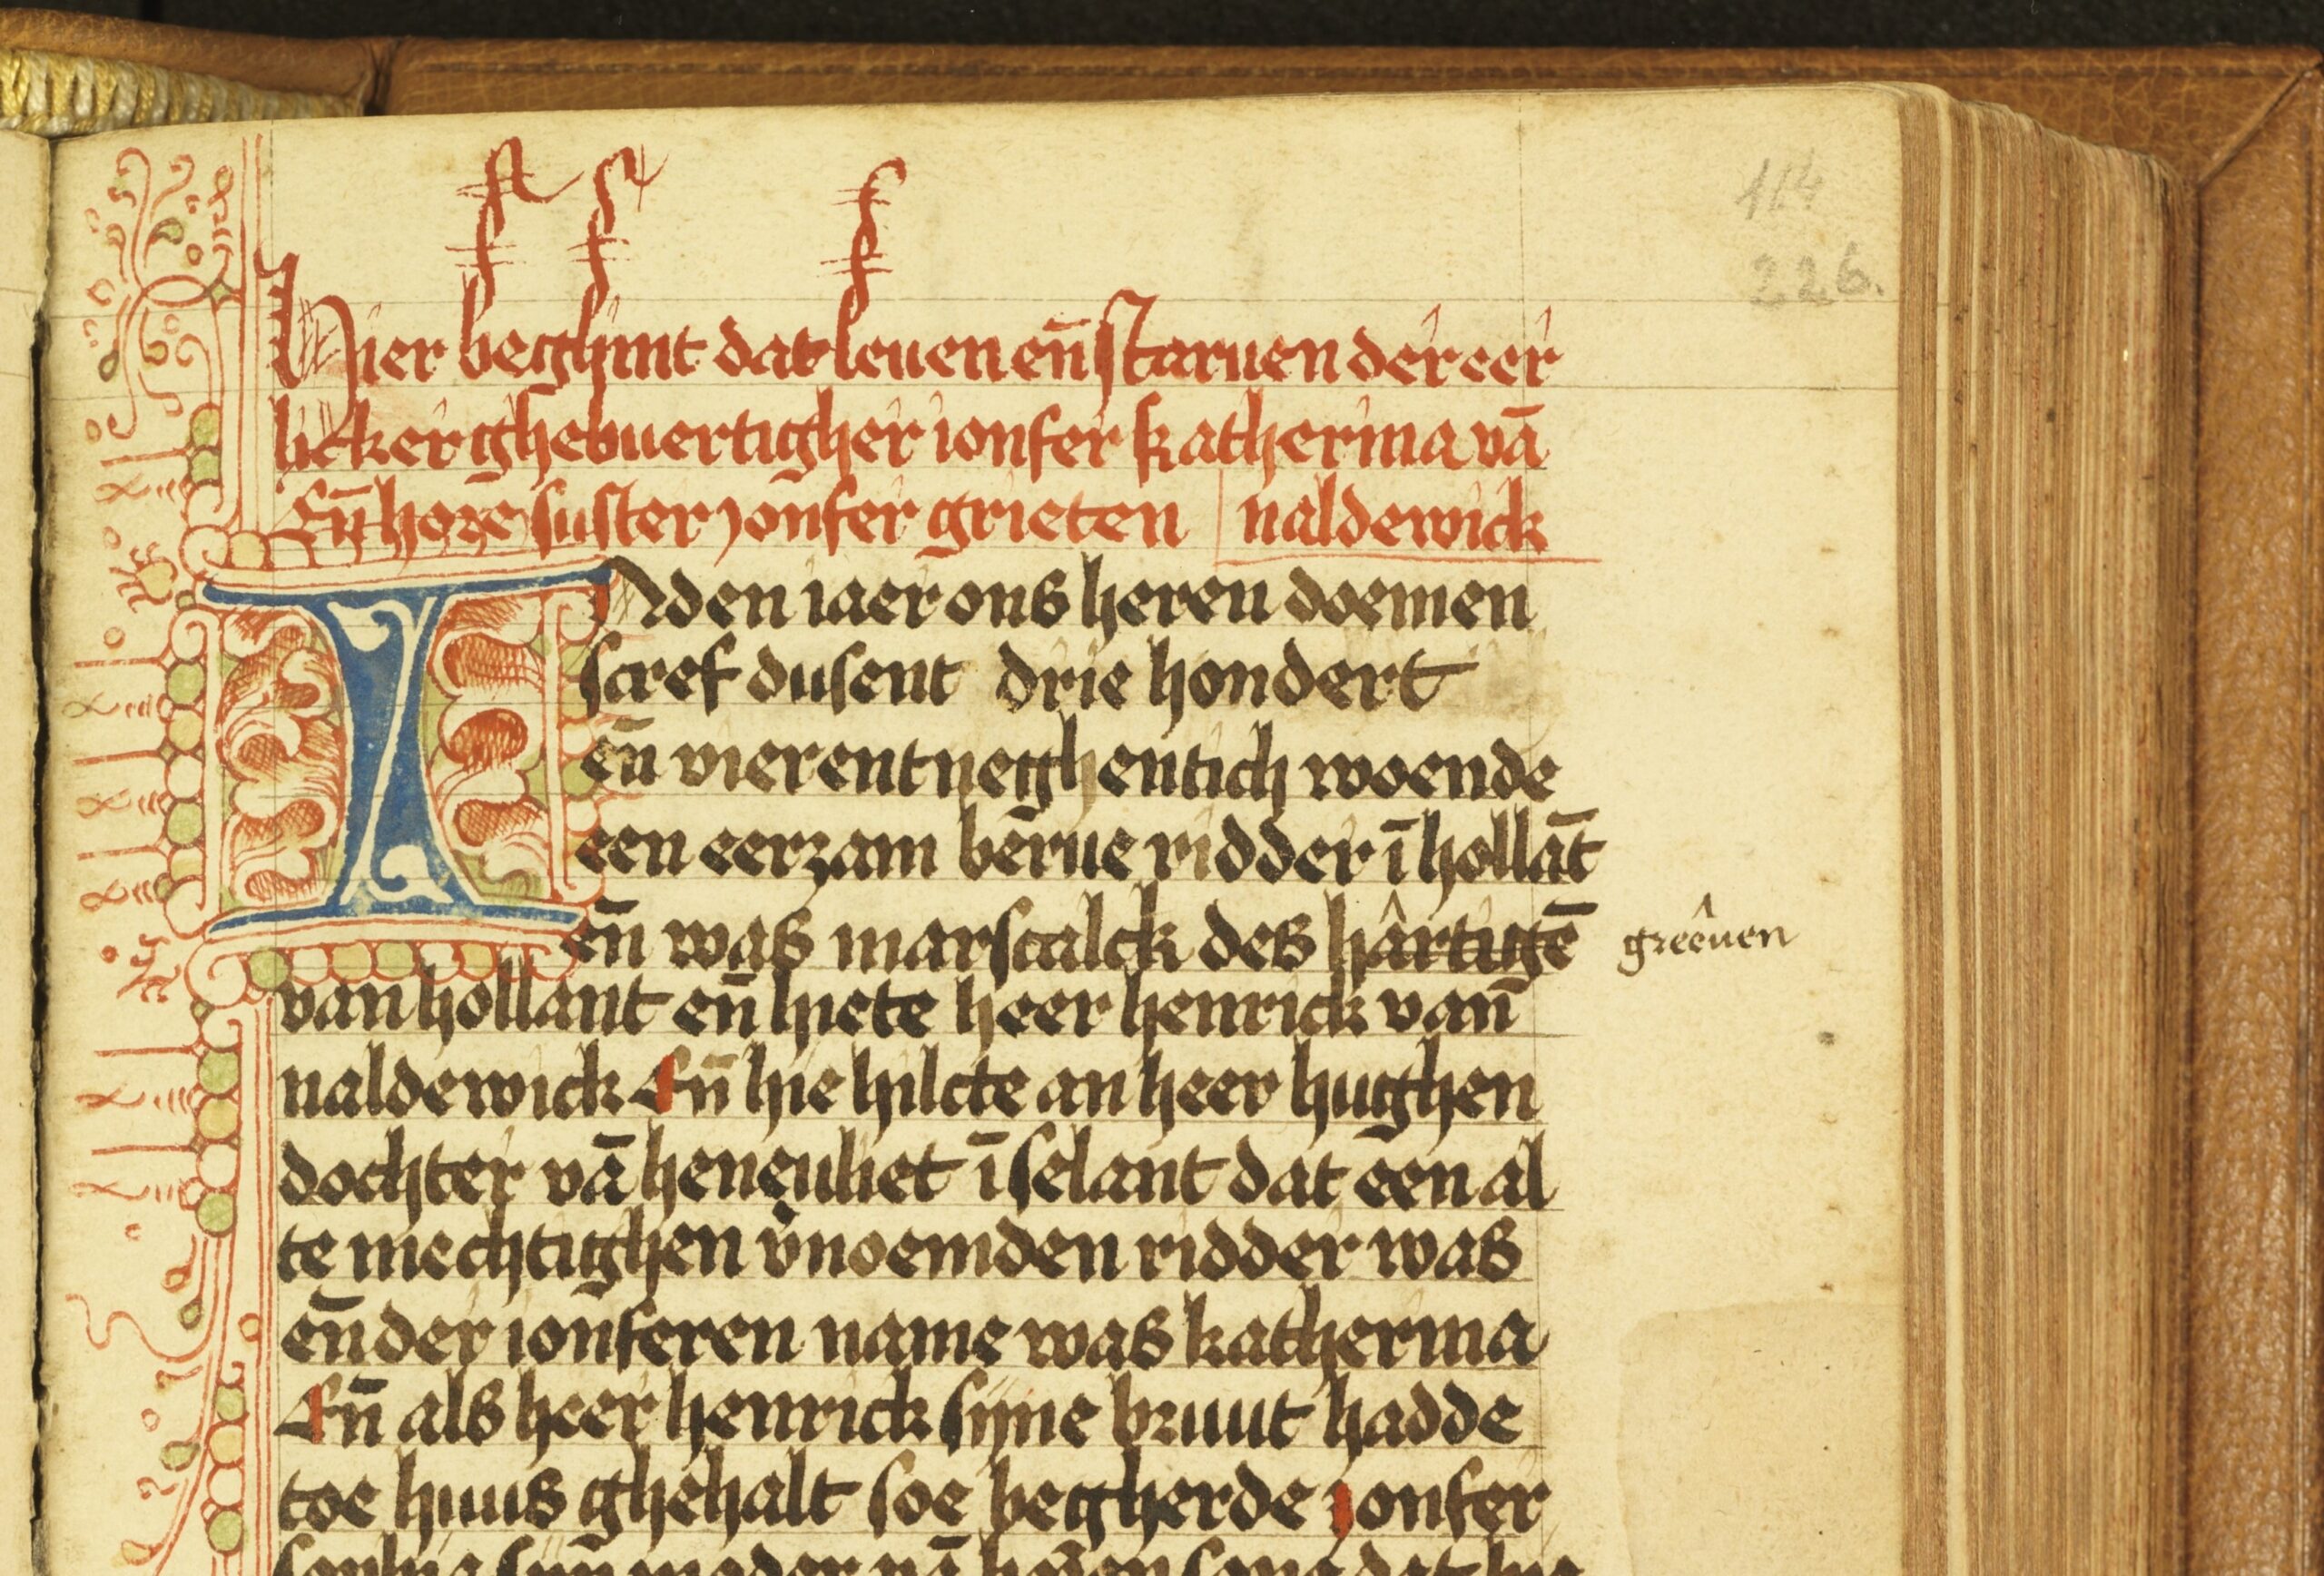 114
226.
Hier beghint dat leuen en̄ staruen der eer
licker ghebuertigher ionfer katherina vā
En̄ hore suster yonfer grieten naldewick
IN den iaer ons heren doemen
scref dusent drie hondert
en̄ vier entneghentich woende
een eerzam bērue ridder ī hollāt
en̄ was marscalck des hârtugē greêuen
van hollant en̄ hiete heer henrick van̄
naldewick En̄ hie hilcte an heer hughen
dochter vā heneuliet ī selant dat een al
te mechtighen v̉noemden ridder was
en̄ der ionferen name was katherina
En̄ als heer henrick sijne bruut hadde
toe huus ghehalt soe begherde yonfer